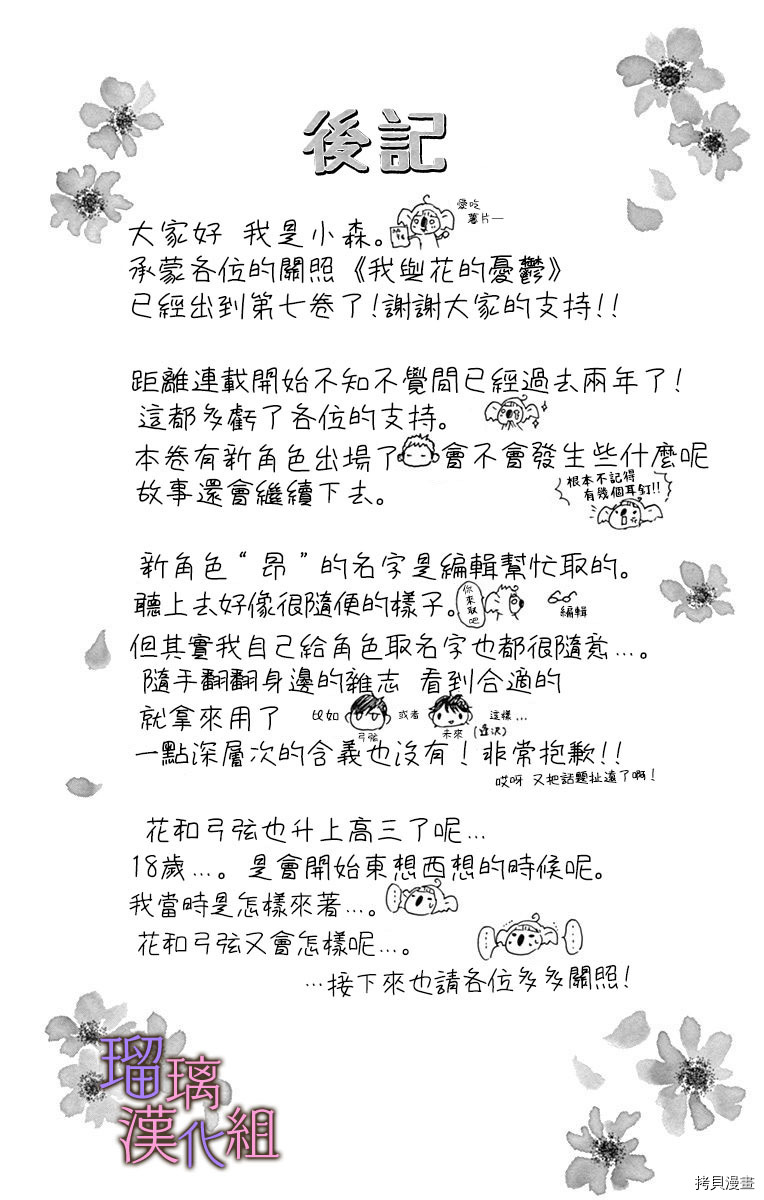 後記
大家好 我是小森。
愛吃
薯片—
承蒙各位的關照《我與花的憂鬱》
已經出到第七卷了!謝謝大家的支持!!
距離連載開始不知不覺間已經過去兩年了!
這都多虧了各位的支持。
本卷有新角色出場了 會不會發生些什麼呢
故事還會繼續下去。
根本不記得
有幾個耳釘!!
新角色“昂”的名字是編輯幫忙取的。
聽上去好像很隨便的樣子。
你來取吧
編輯
但其實我自己給角色取名字也都很隨意...。
隨手翻翻身邊的雜志 看到合適的
就拿來用了 比如 或者 這樣...
弓弦
未來(逢沢)
一點深層次的含義也沒有!非常抱歉!!
哎呀 又把話題扯遠了啊!
花和弓弦也升上高三了呢...
18歲...。是會開始東想西想的時候呢。
我當時是怎樣來著...。
花和弓弦又會怎樣呢...。
...接下來也請各位多多關照!
瑠璃
漢化組
拷貝漫畫